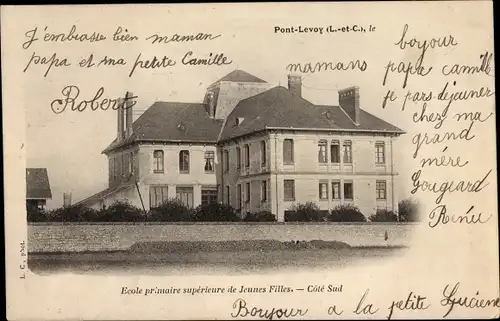 Pont-Levoy (L.-et-C.), le
J'embrasse bien maman
papa et ma petite Camille
Robert
mamans
boujour
papa camille
je pars déjeuner
chez ma
grand
mère
Gougeard
Renée
L. C., phot.
Ecole primaire supérieure de Jeunes Filles. — Côté Sud
Boujour a la petite Lucienne